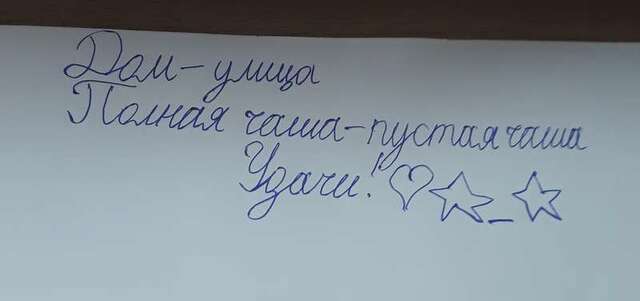 Дом - улица
Полная чаша - пустая чаша
Удачи! ♡☆_☆